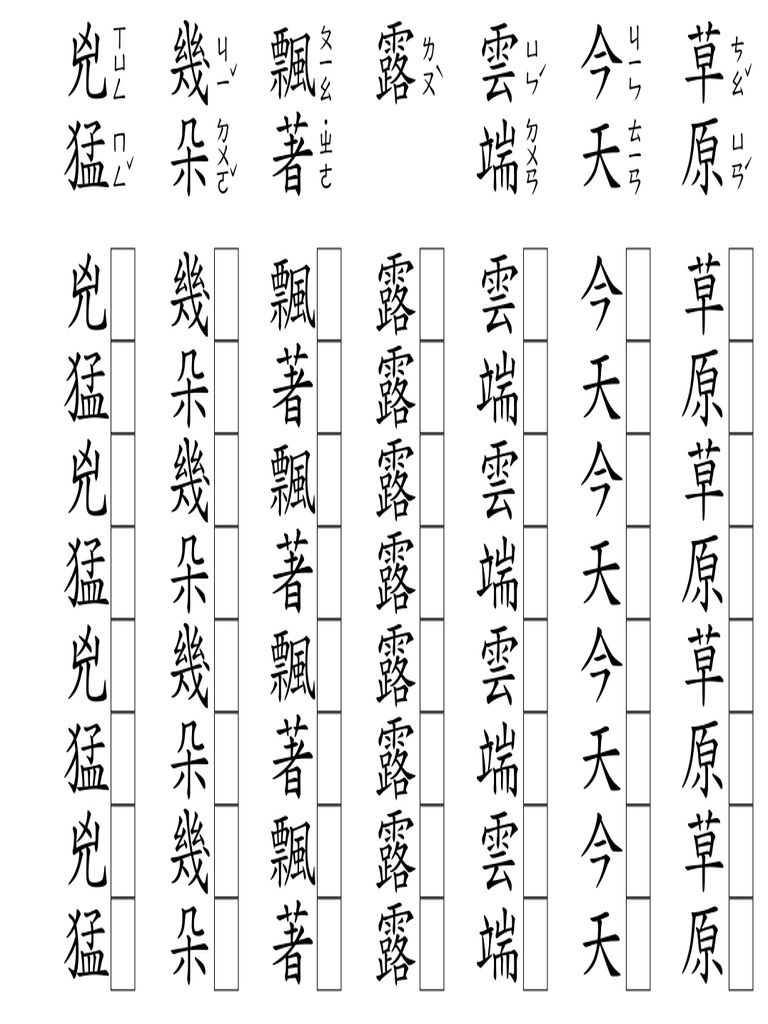 草ㄘㄠˇ原ㄩㄢˊ
今ㄐㄧㄣ天ㄊㄧㄢ
雲ㄩㄣˊ端ㄉㄨㄢ
露ㄌㄡˋ
飄ㄆㄧㄠ著˙ㄓㄜ
幾ㄐㄧˇ朵ㄉㄨㄛˇ
兇ㄒㄩㄥ猛ㄇㄥˇ
草原草原草原草原
今天今天今天今天
雲端雲端雲端雲端
露露露露露露露露
飄著飄著飄著飄著
幾朵幾朵幾朵幾朵
兇猛兇猛兇猛兇猛